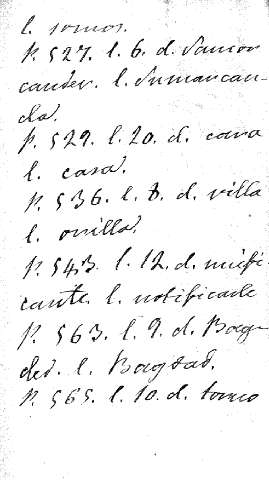 l. somos.
p. 527. l. 6. d. Samar
cander. l. Sumarcan-
da.
p. 529. l. 20. d. cara
l. casa.
p. 536. l. 8. d. villa
l. orilla.
p. 543. l. 12. d. mifi-
cante. l. notificade
p. 563. l. 9. d. Bag-
ded. l. Bagdad.
p. 565. l. 10. d. tomo